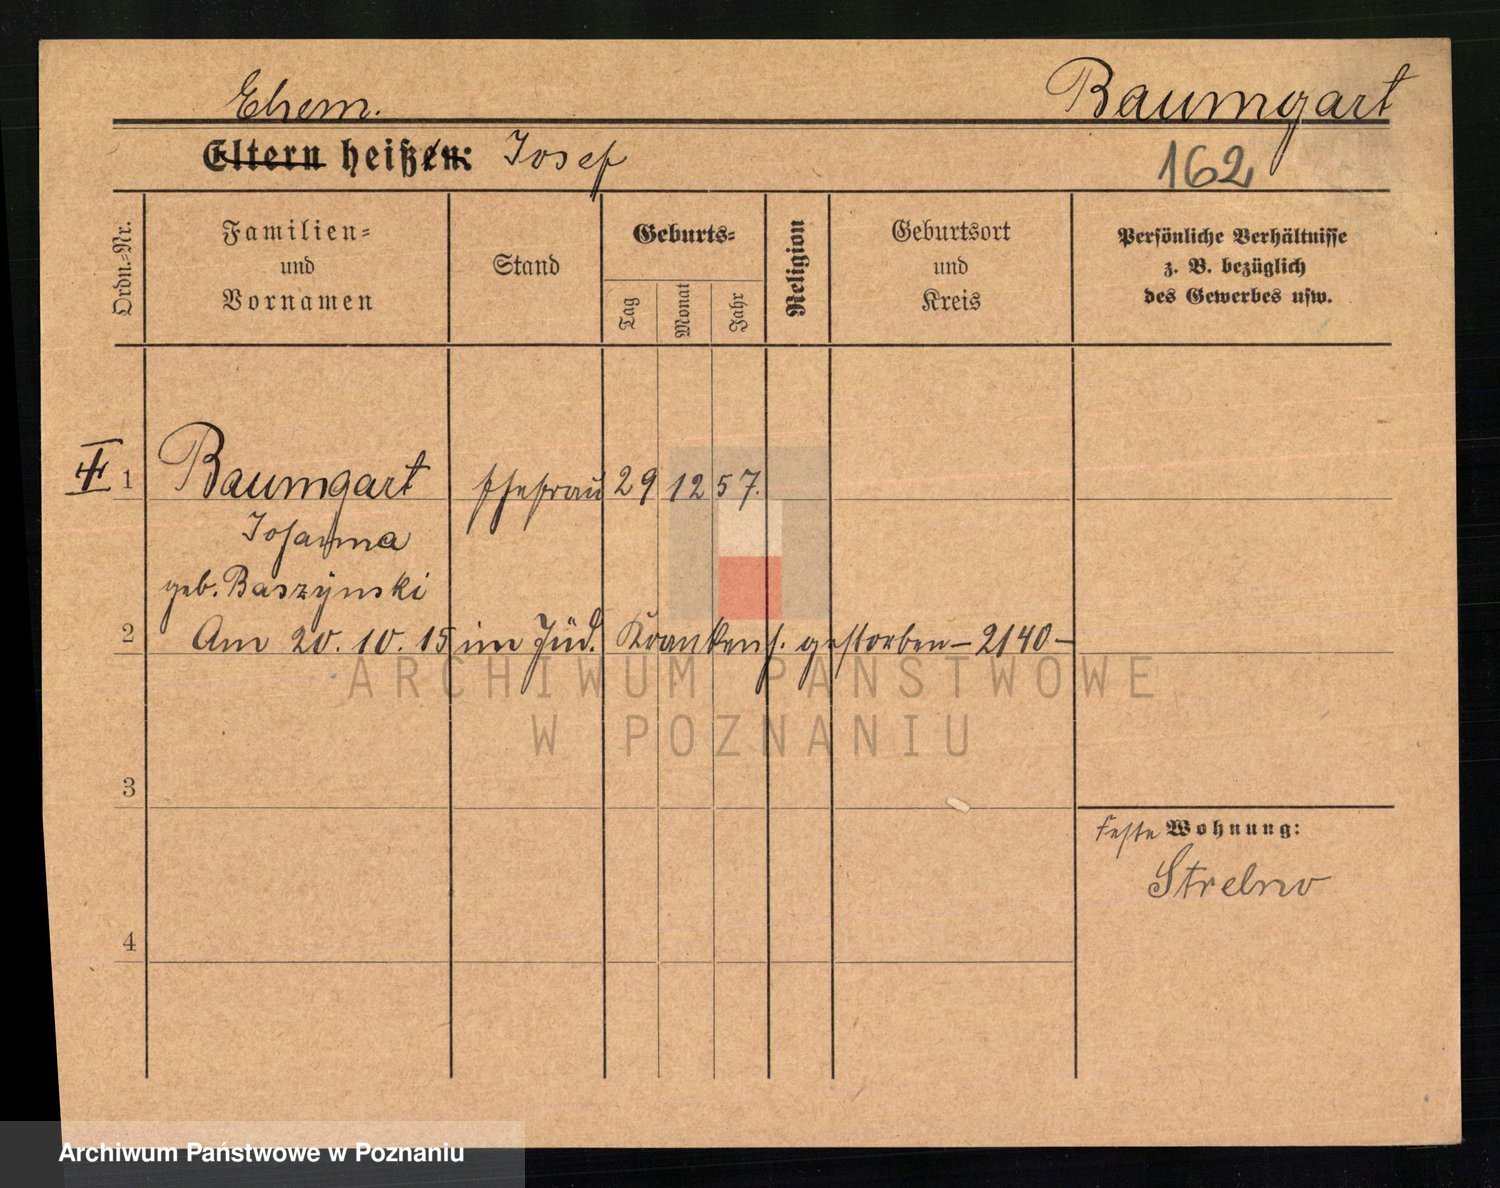 Ehem.
Baumgart
Eltern heißen: Josef
162
Ordn.-Nr.
Familien-
und
Vornamen
Stand
Geburts-
Tag
Monat
Jahr
Religion
Geburtsort
und
Kreis
Persönliche Verhältnisse
z. B. bezüglich
des Gewerbes usw.
1 Baumgart Ehefrau 29 12 57.
Johanna
geb. Baszynski
2 Am 20. 10. 15 im Jüd. Krankenh. gestorben – 2140 –
3
feste Wohnung:
Strelno
4
ARCHIWUM PAŃSTWOWE
W POZNANIU
Archiwum Państwowe w Poznaniu